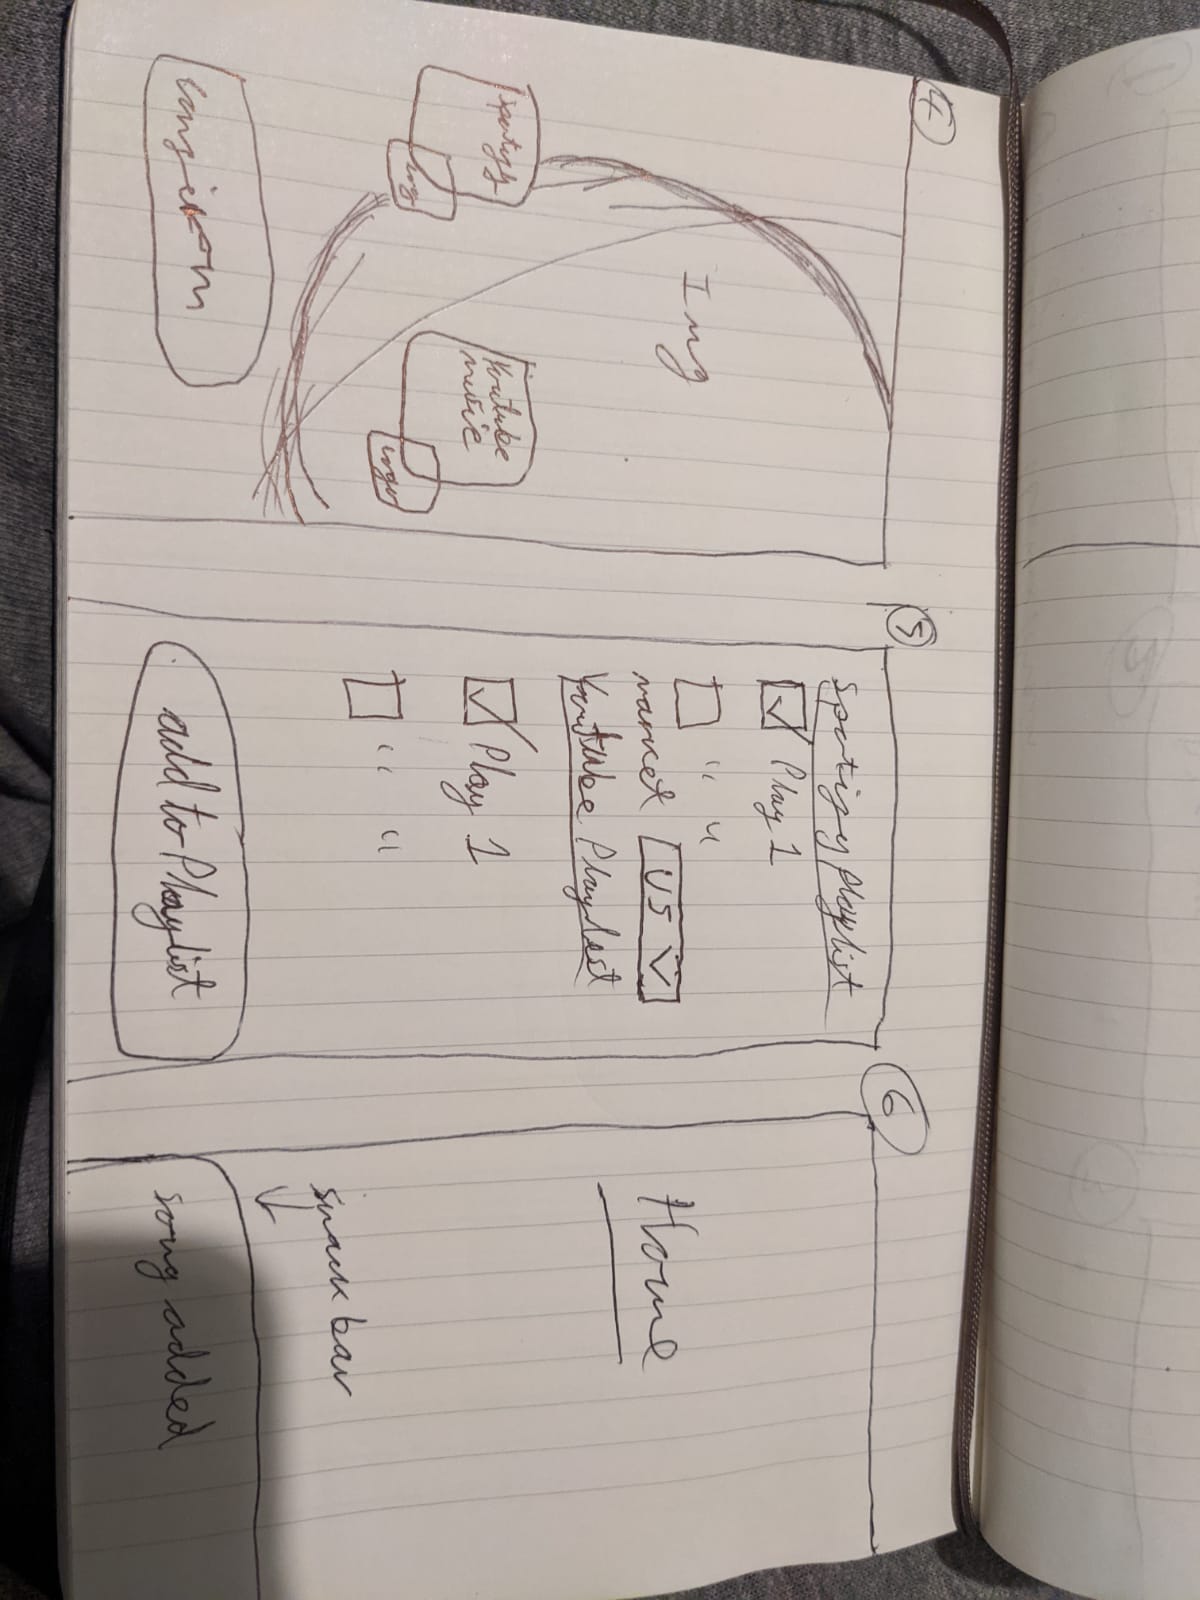 4
Img
Spotify
logo
Youtube
music
logo
5
Spotify playlist
Play 1
" "
market US
Youtube Playlist
Play 1
" "
add to Playlist
6
Home
snack bar
song added